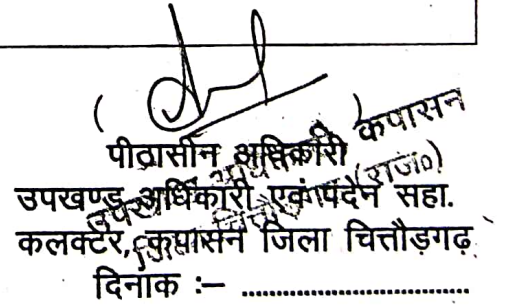 ( )
पीठासीन अधिकारी
उपखण्ड अधिकारी एवं पदेन सहा.
कलक्टर, कपासन जिला चित्तौड़गढ़
दिनांक :– ................................
उपखण्ड अधिकारी कपासन
जिला चित्तौड़गढ़ (राज०)